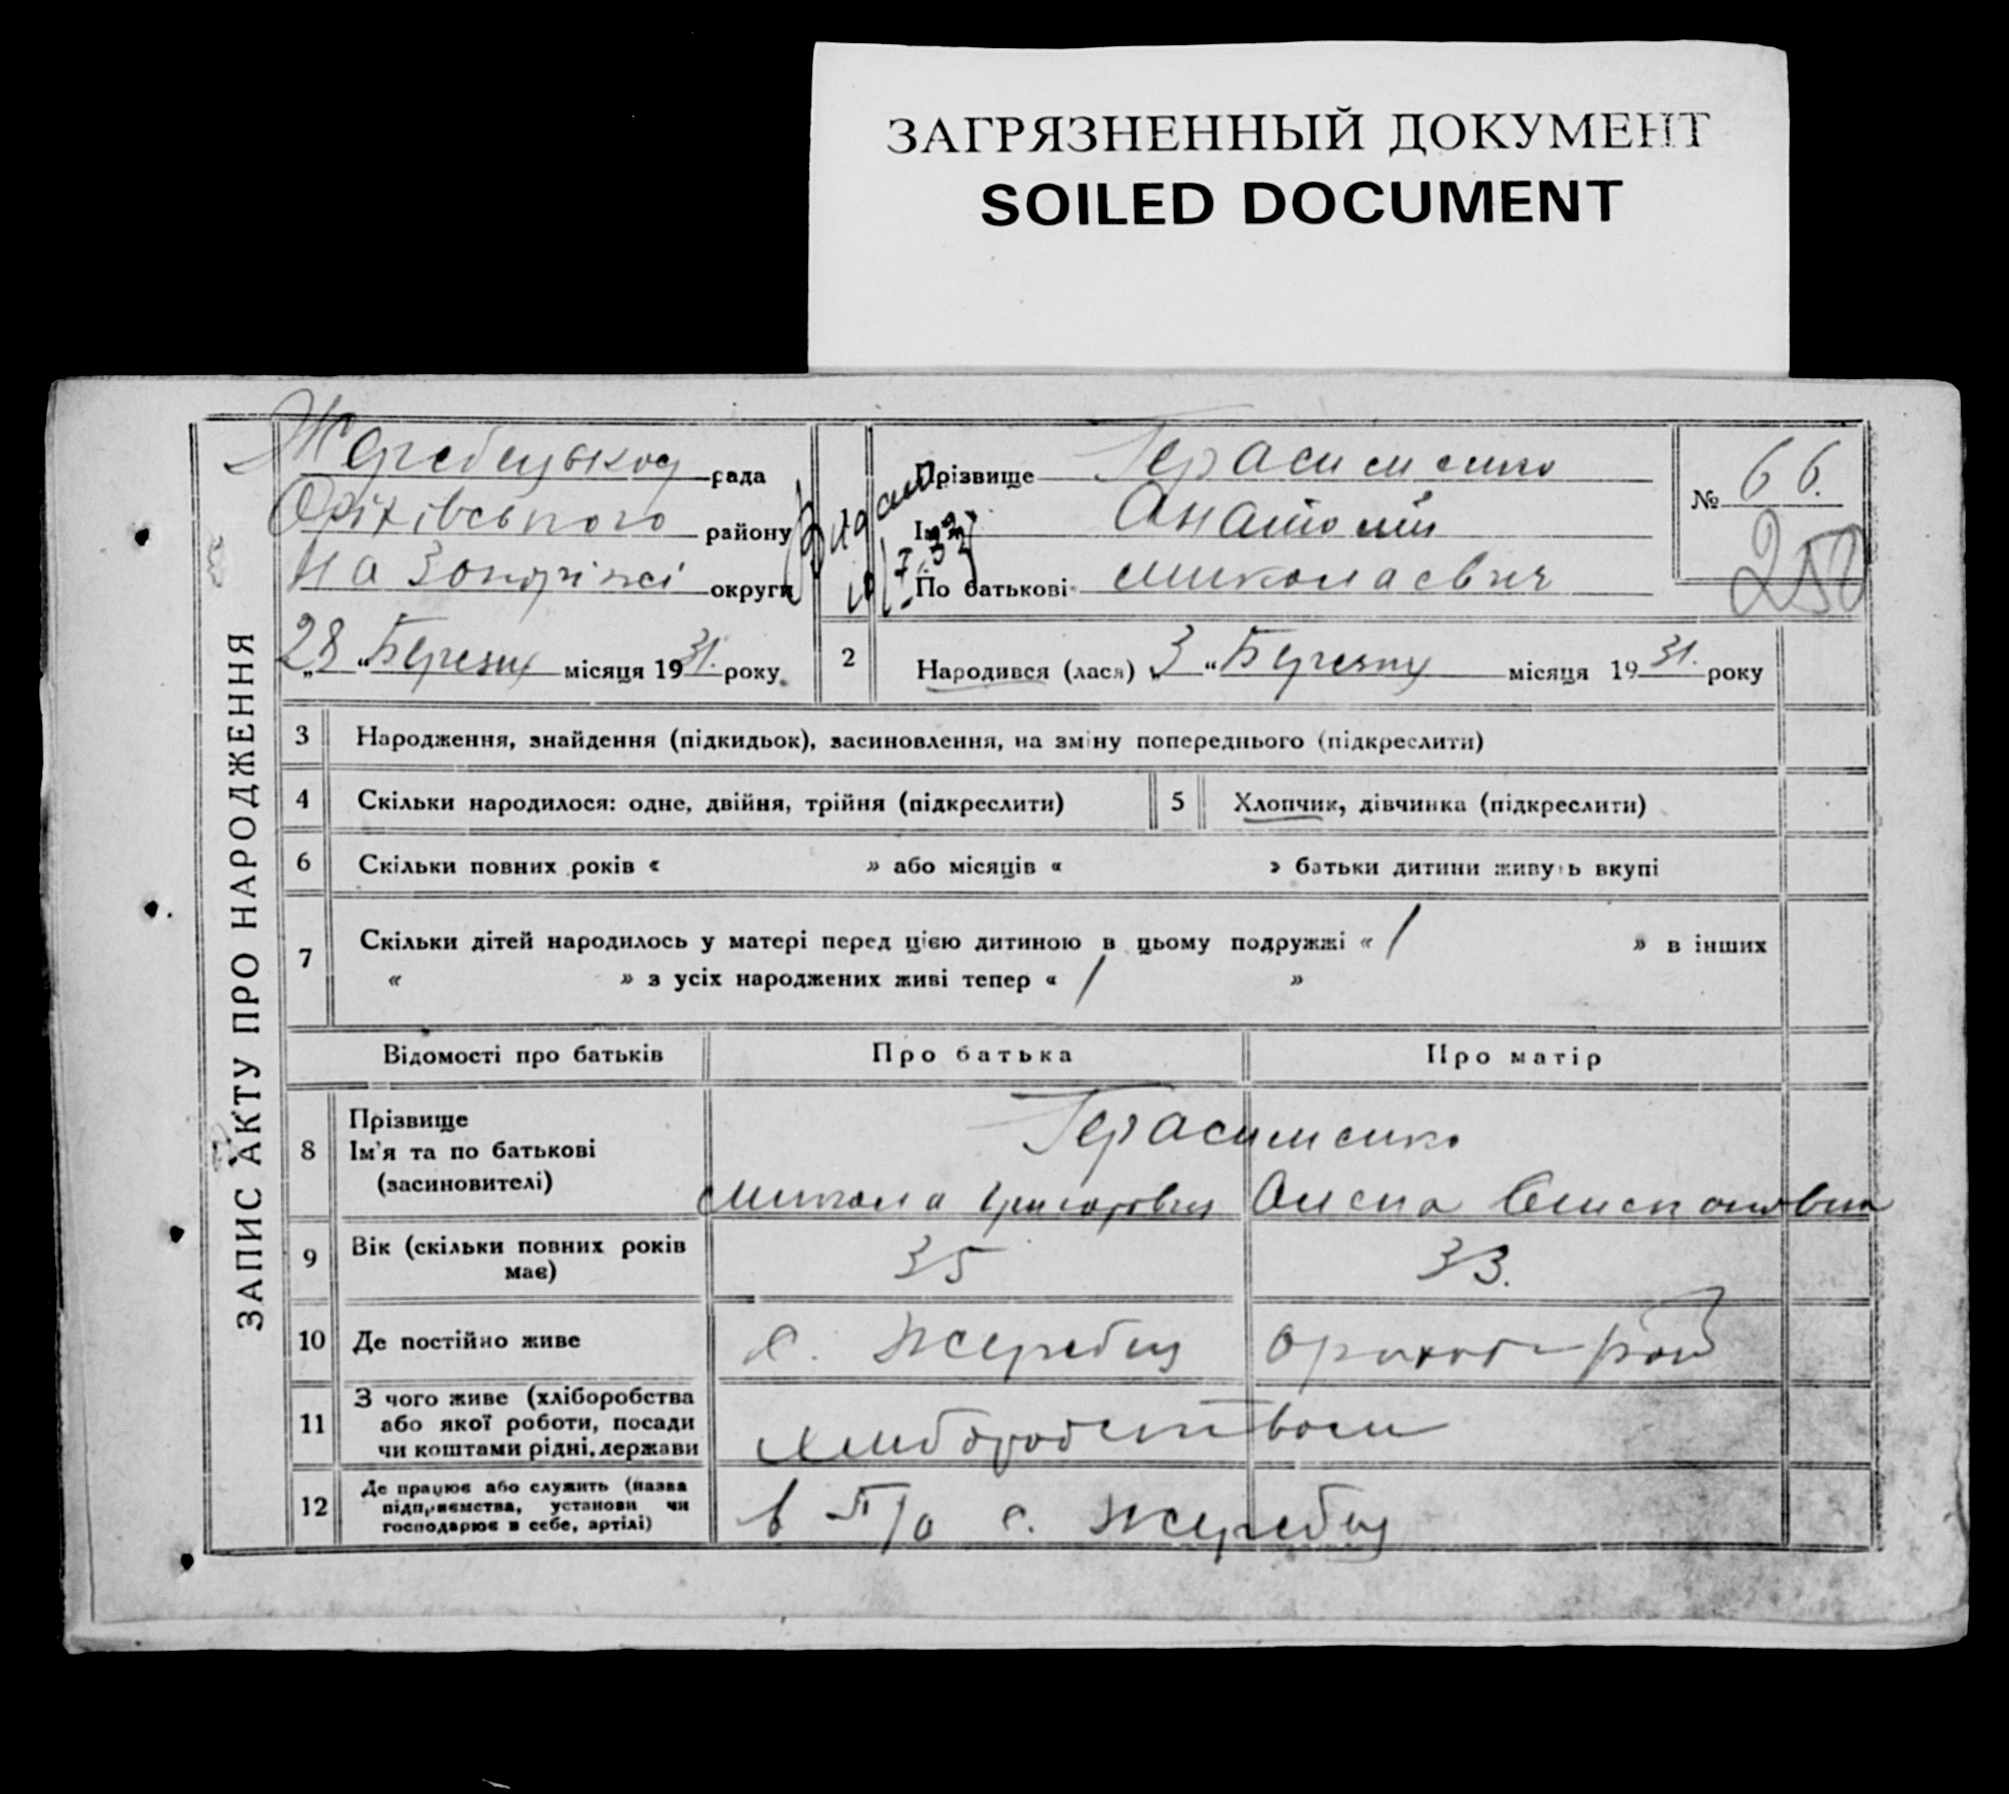 ЗАГРЯЗНЕННЫЙ ДОКУМЕНТ
SOILED DOCUMENT
ЗАПИС АКТУ ПРО НАРОДЖЕННЯ
Жеребецькою рада
Оріхівського району
на Запоріжжі округи
„28“ Березня місяця 1931. року
Видано
Прізвище Герасименко
Ім'я Анатолій
По батькові Миколаевич
№ 66.
250
2 Народився (лася) „3“ Березня місяця 1931. року
3 Народження, знайдення (підкидьок), засиновлення, на зміну попереднього (підкреслити)
4 Скільки народилося: одне, двійня, трійня (підкреслити) 5 Хлопчик, дівчинка (підкреслити)
6 Скільки повних років « » або місяців « » батьки дитини живуть вкупі
7 Скільки дітей народилось у матері перед цією дитиною в цьому подружжі « 1 » в інших
« » з усіх народжених живі тепер « 1 »
Відомості про батьків Про батька Про матір
8 Прізвище
Ім'я та по батькові
(засиновителі)
Герасименко
Микола Григорович
9 Вік (скільки повних років
має)
35 33.
10 Де постійно живе с. Жеребец
11 З чого живе (хліборобства
або якої роботи, посади
чи коштами рідні, держави
хлиборобством
12 Де працює або служить (назва
підприємства, установи чи
господарює в себе, артілі)
в с. Жеребец